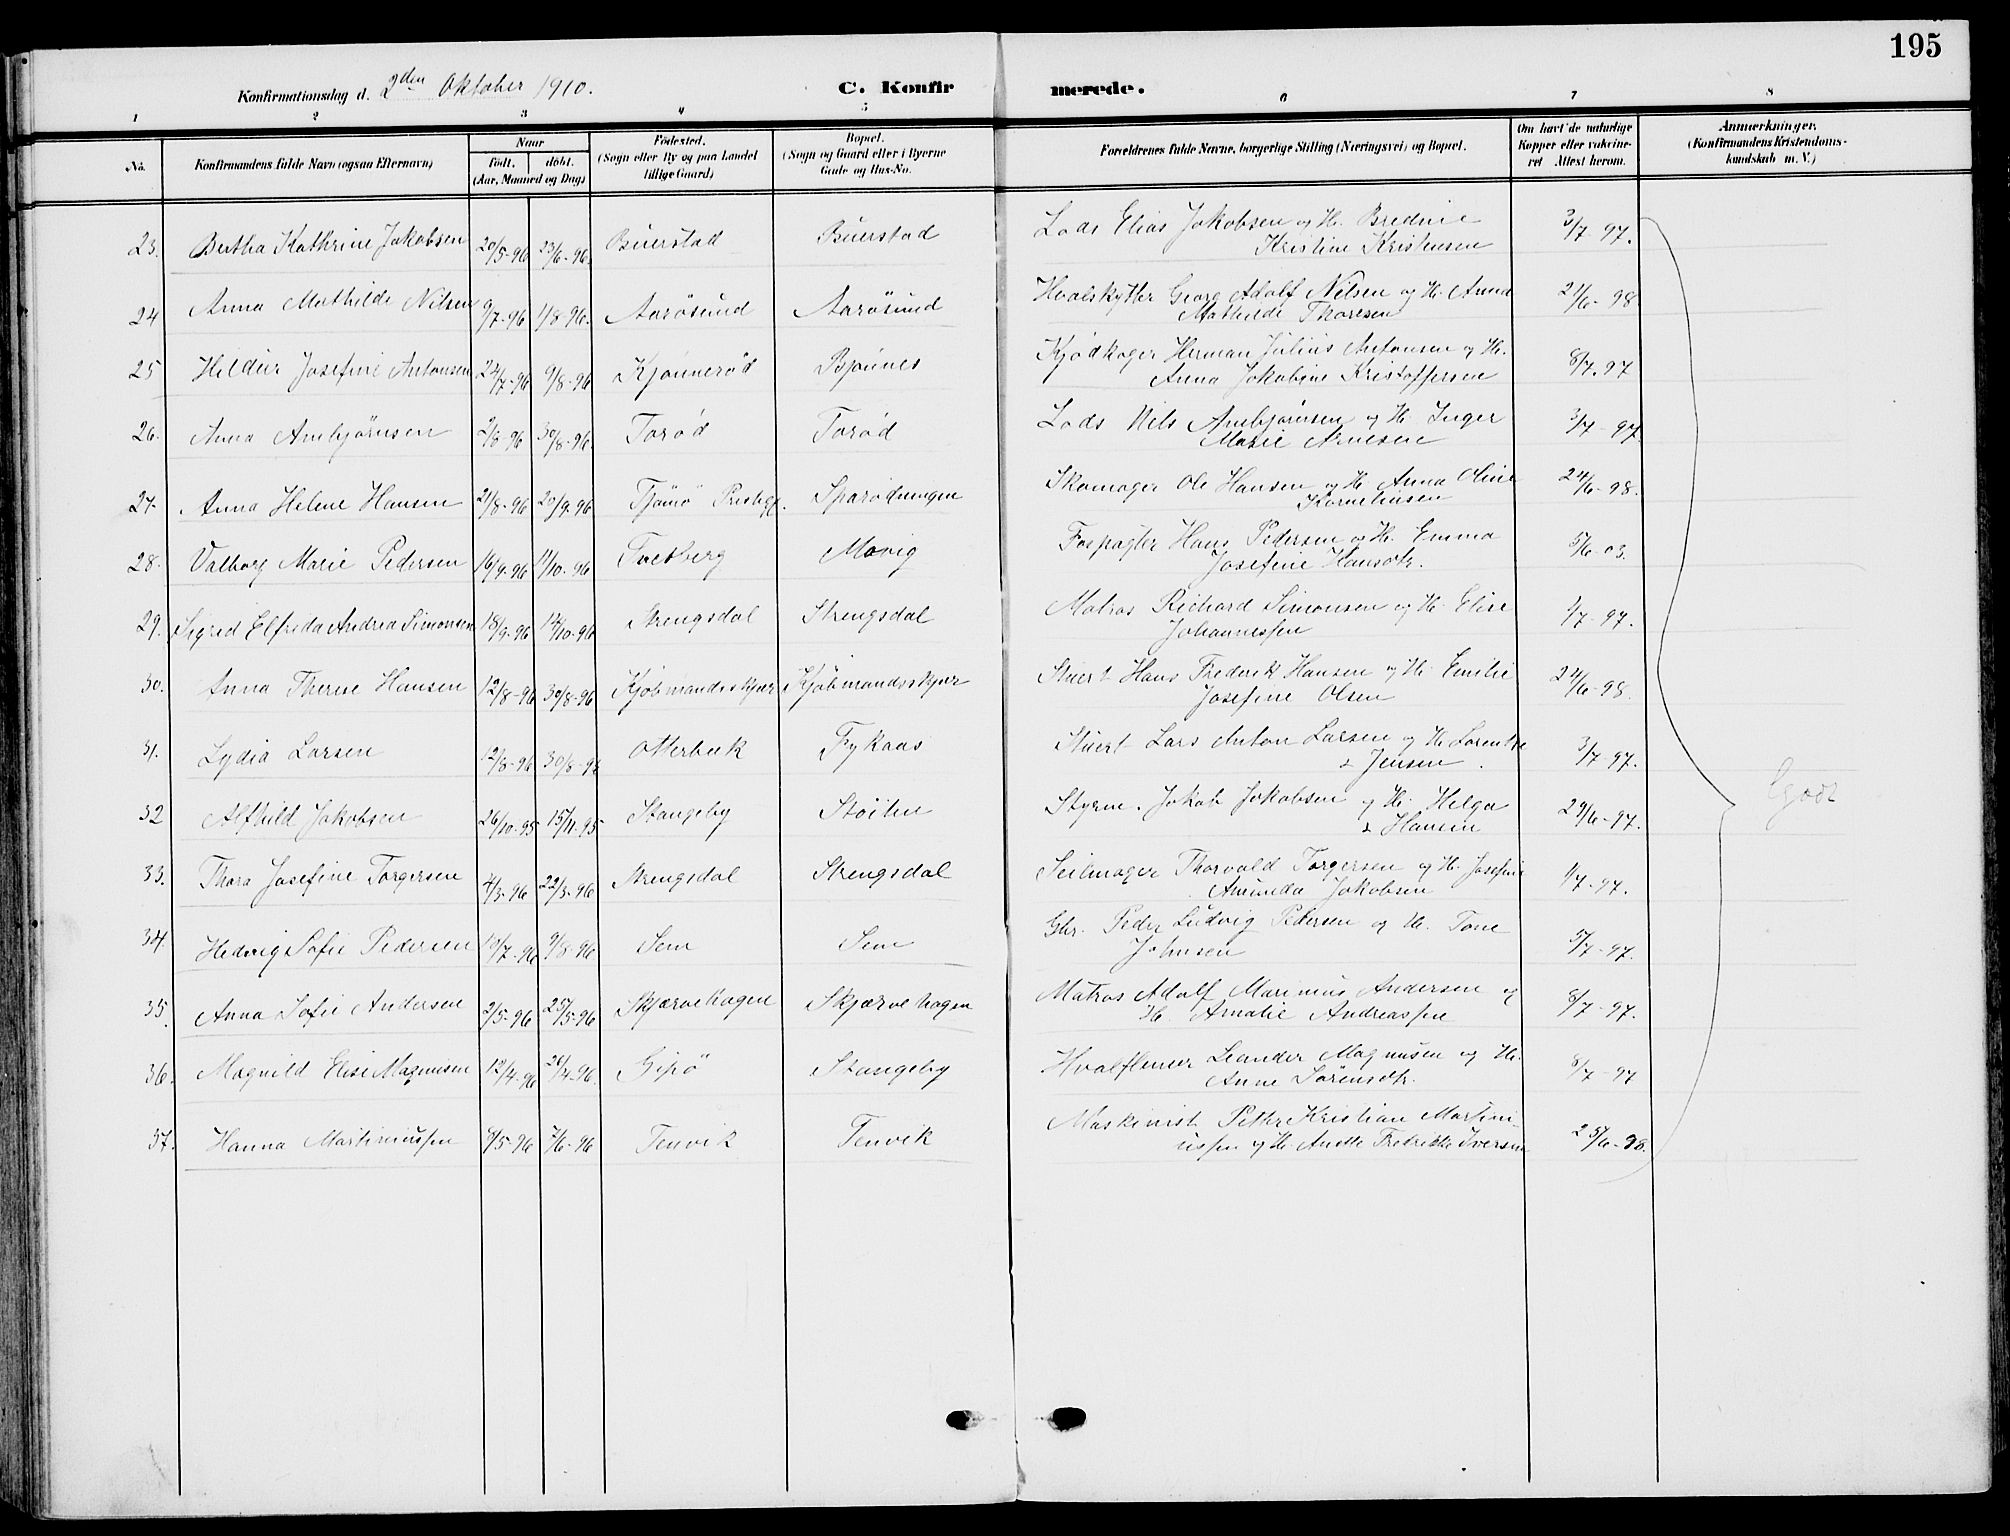 195
Konfirmationsdag d. 2den Oktober 1910.
C. Konfirmerede.
1 2 3 4 5 6 7 8
No. Konfirmandens fulde Navn (ogsaa Efternavn) Naar født. døbt. (Aar, Maaned og Dag) Fødested. (Sogn eller By og paa Landet tillige Gaard) Bopæl. (Sogn og Gaard eller i Byerne Gade og Hus-No. Forældrenes fulde Navne, borgerlige Stilling (Næringsvei) og Bopæl. Om havt de naturlige Kopper eller vakcineret Attest herom. Anmærkninger. (Konfirmandens Kristendomskundskab m. V.)
23. Bertha Kathrine Jakobsen 20/5-96 23/6-96. Buerstad Buerstad Lods Elias Jakobsen og H. Bredine 3/7-97.
Kristine Kristensen
24 Anna Mathilde Nilsen 9/7-96 1/8-96. Aarøsund Aarøsund Hvalskytter Georg Adolf Nilsen og H. Anna 21/6-98
Mathilde Thoresen
25 Hildur Josefine Antonsen 24/7-96 9/8-96 Kjønnerød Bjønnes Kjødkoger Herman Julius Antonsen og H. 8/7.97
Anna Jakobine Kristoffersen
26. Anna Arnbjørnsen 2/8-96 30/8-96. Torød Torød Lods Nils Arnbjørnsen og H. Inger 3/7-97.
Marie Arnesen
27. Anna Helene Hansen 21/8-96 20/9-96 Tjømø Prestegj. Sparødningen Skomager Ole Hansen og H. Anna Oline 24/6-98.
Korneliusen
28. Valborg Marie Pedersen 16/9-96 11/10-96 Tvetberg Movig Hans Pedersen og H. Emma 5/6-03.
Josefine Hansdtr.
29. Sigrid Elfrida Andrea Simonsen 18/9-96 18/10-96 Strengsdal Strengsdal Matros Richard Simonsen og H. Elise 1/7-97.
Johannessen
30. Anna Therese Hansen 12/8-96 30/8-96 Kjøbmandsskjær Kjøbmandsskjær Stuert Hans Frederik Hansen og H. Emilie 24/6-98.
Josefine Olsen
31. Lydia Larsen 12/8-96 30/8-96 Otterbæk Fykaas Stuert Lars Anton Larsen og H. Lorentze 3/7-97.
Jensen.
32 Alfhild Jakobsen 26/10-95 15/11-95 Stangeby Støiten Styrm. Jakob Jakobsen og H. Helga 29/6-97. Godt
Hansen
33. Thora Josefine Torgersen 4/3-96 22/3-96 Strengsdal Strengsdal Seilmager Thorvald Torgersen og H. Josefine 1/7-97.
Amunda Jakobsen
34. Hedvig Sofie Pedersen 10/7-96 9/8-96 Sem Sem Gbr. Peder Ludvig Pedersen og H. Tone 5/7-97.
Johnsen
35. Anna Sofie Andersen 2/5-96 25/5-96 Skjærvehagen Skjærvehagen Matros Adolf Marinius Andersen og 8/7-97.
H. Amalie Andreassen
36. Magnild Elise Magnusen 12/4-96 26/4-96. Gipø Stangeby Hvalflenser Leander Magnusen og H. 8/7-97
Anne Sørensdtr.
37. Hanna Martiniussen 8/5-96 7/6-96 Tenvik Tenvik Maskinist Pethr Kristian Martini-
ussen og H. Anette Fredrikke Iversen 25/6-98.